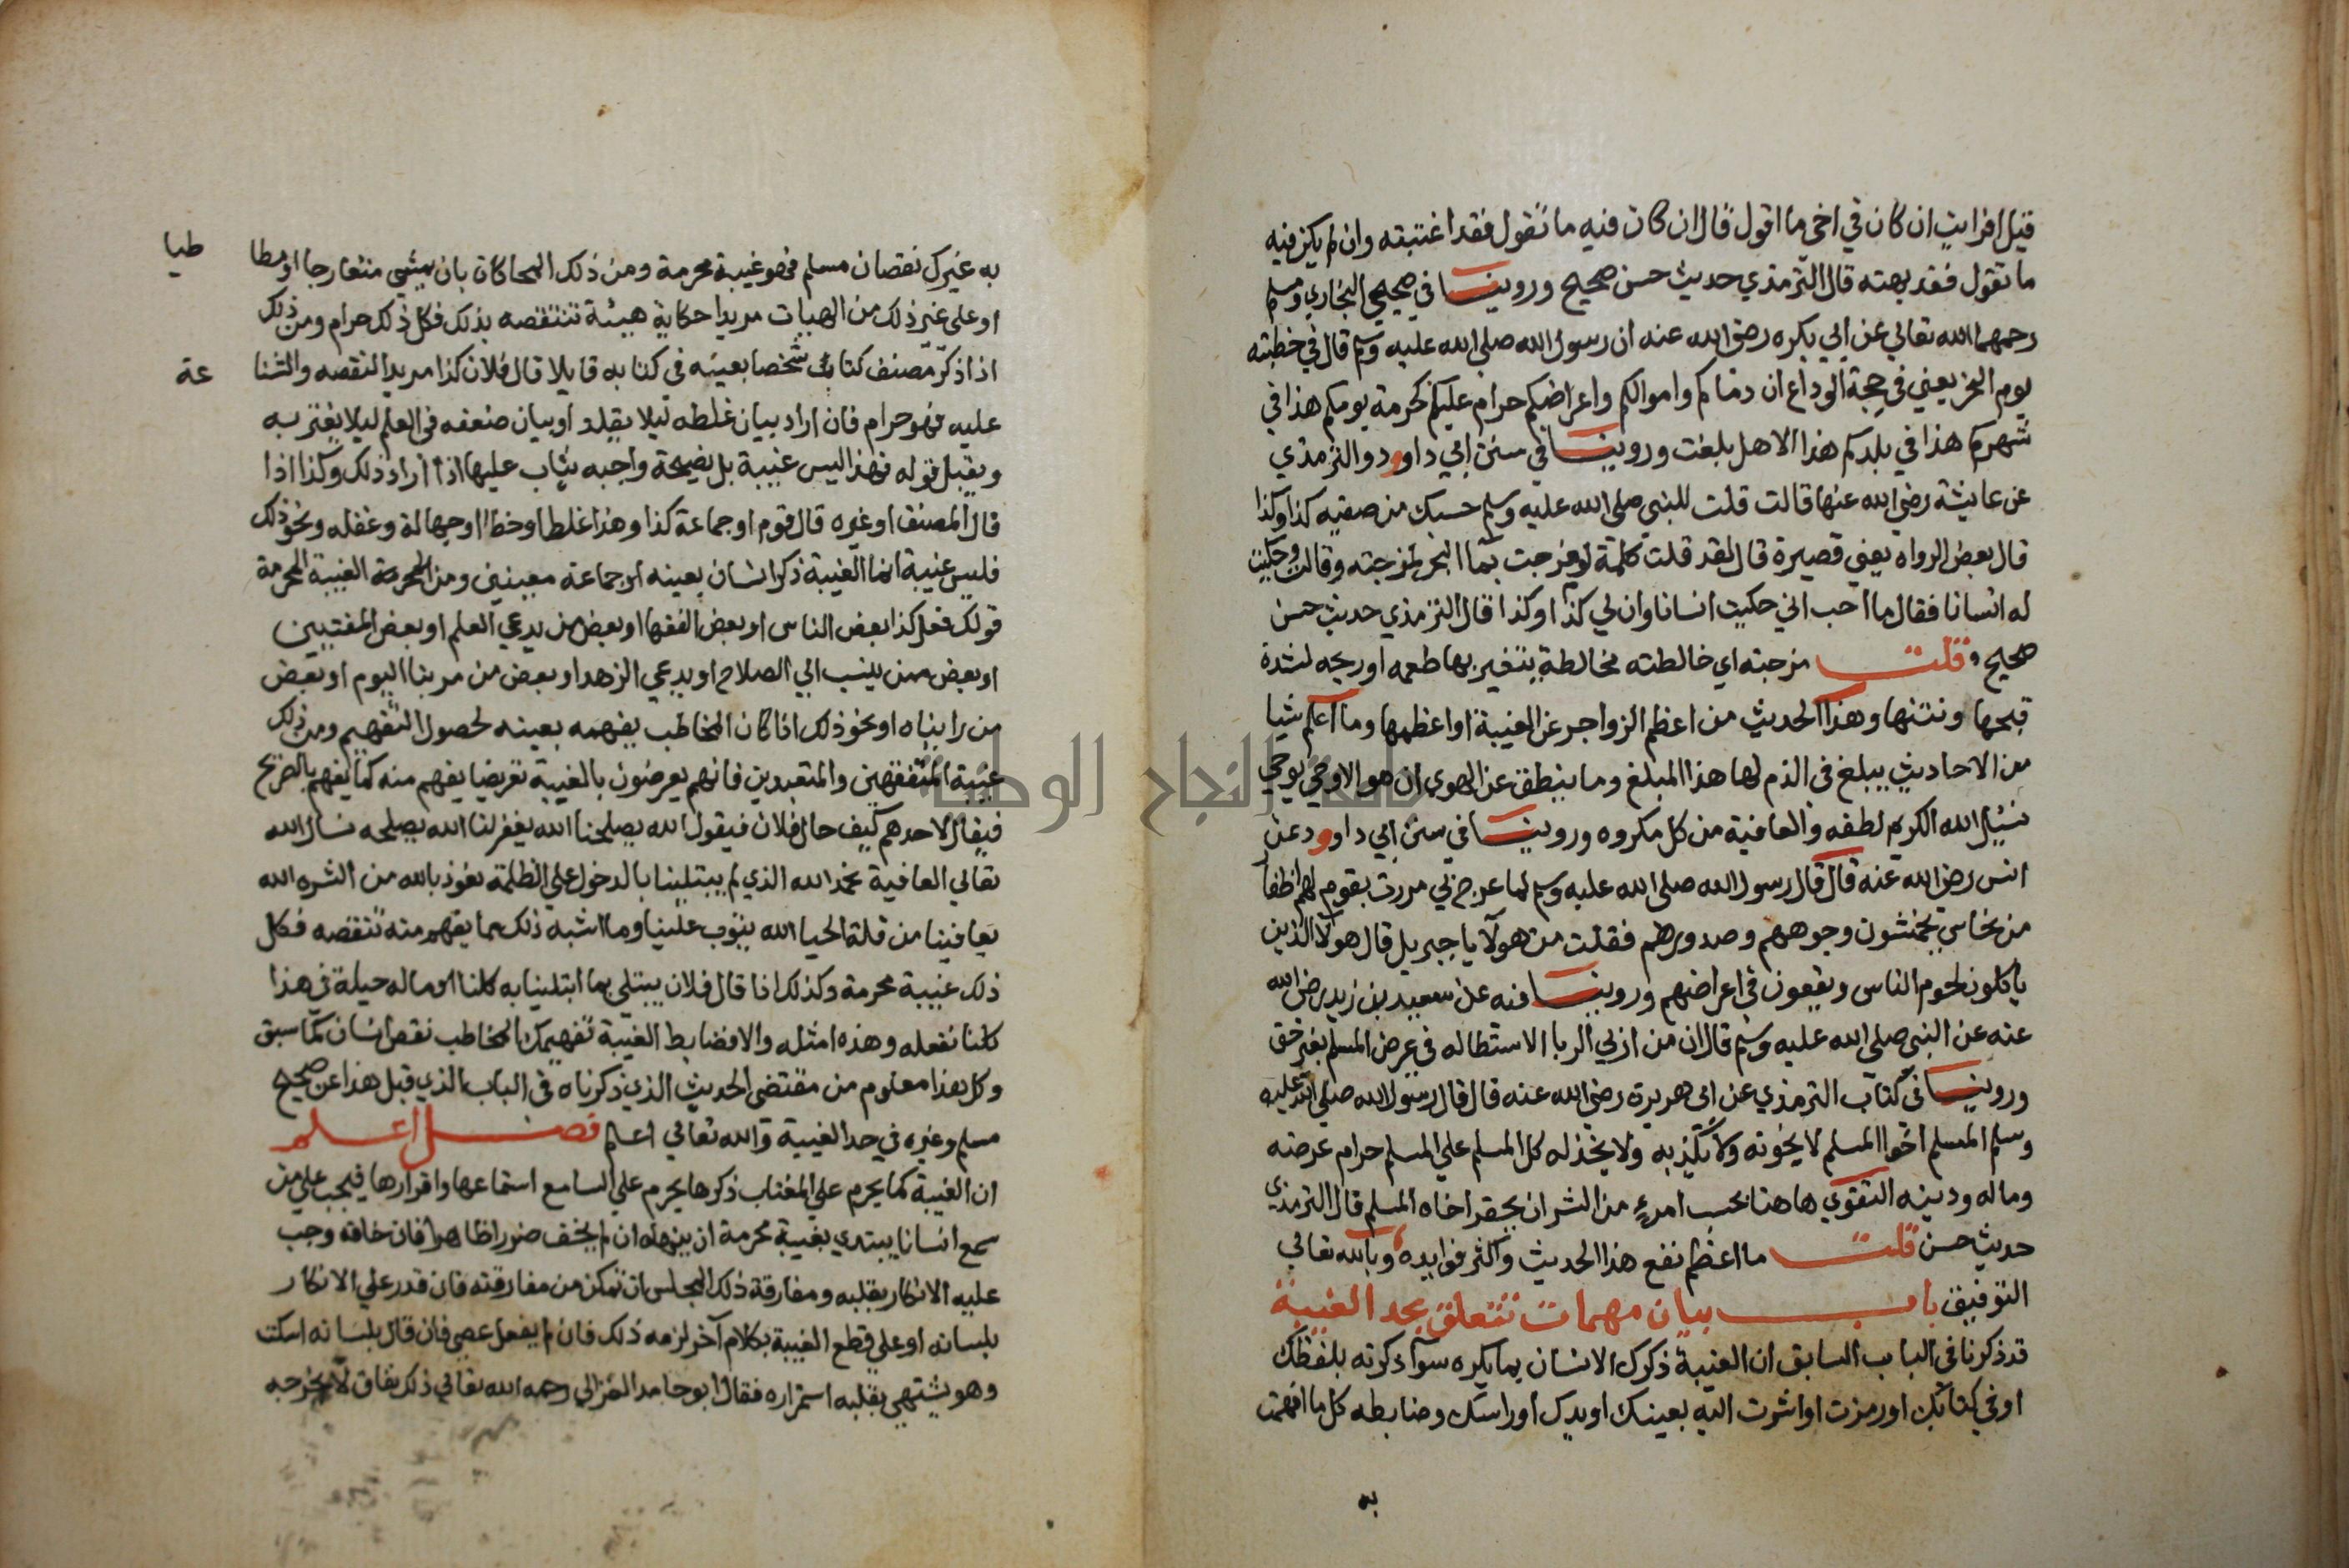 قيل افرايت ان كان في اخي ما اقول قال ان كان فيه ما تقول فقد اغتبته وان لم يكن فيه
ما تقول فقد بهته قال الترمذي حديث حسن صحيح وروينا في صحيحي البخاري ومسلم
رحمهما الله تعالي عن ابي بكره رضي الله عنه ان رسول الله صلي الله عليه وسلم قال في خطبته
يوم النحر يعني في حجة الوداع ان دماكم واموالكم واعراضكم حرام عليكم كحرمة يومكم هذا في
شهركم هذا في بلدكم هذا الاهل بلغت وروينا في سنن ابي داوود والترمذي
عن عايشة رضي الله عنها قالت قلت للنبي صلي الله عليه وسلم حسبك من صفيه كذا وكذا
قال بعض الرواه يعني قصيرة قال لقد قلت كلمة لو مزجت بما البحر لمزجته وقالت وحكيت
له انسانا فقال ما احب اني حكيت انسانا وان لي كذا وكذا قال الترمذي حديث حسن
صحيح وقلت مزجته اي خالطته مخالطة يتغير بها طعمه اوريحه لشدة
قبحها ونتنها وهذا الحديث من اعظم الزواجر عن الغيبة اواعظمها وما اعلم شيا
من الاحاديث يبلغ في الذم لها هذا المبلغ وما ينطق عن الهوي ان هو الا وحي يوحي
نسيل الله الكريم لطفه والعافية من كل مكروه وروينا في سنن ابي داوود عن
انس رضي الله عنه قال قال رسول الله صلي الله عليه وسلم لما عرج بي مررت بقوم لهم اظفار
من نحاس يخمشون وجوههم وصدورهم فقلت من هولآ يا جبريل قال هولآ الذين
ياكلون لحوم الناس ويقعون في اعراضهم وروينا فيه عن سعيد بن زيد رضي الله
عنه عن النبي صلي الله عليه وسلم قال ان من اربي الربا الاستطاله في عرض المسلم بغير حق
وروينا في كتاب الترمذي عن ابي هريرة رضي الله عنه قال قال رسول الله صلي الله عليه
وسلم المسلم اخوا المسلم لا يخونه ولا يكذبه ولا يخذله كل المسلم علي المسلم حرام عرضه
وماله ودينه التقوي هاهنا بحسب امرء من الشر ان يحقر اخاه المسلم قال الترمذي
حديث حسن قلت ما اعظم نفع هذا الحديث واكثر فوايده وبالله تعالي
التوفيق باب بيان مهمات تتعلق بحد الغيبة
قد ذكرنا في الباب السابق ان الغيبة ذكرك الانسان بما يكره سوآ ذكرته بلفظك
او في كتابك اورمزت اواشرت اليه بعينك اويدك اوراسك وضابطه كل ما افهمت
به
به غيرك نقصان مسلم فهو غيبة محرمة ومن ذلك المحاكات بان يمشي متعارجا او مطا
طيا
او علي غير ذلك من الهيات مريدا حكاية هيئة تتنقصه بذلك فكل ذلك حرام ومن ذلك
اذا ذكر مصنف كتاب شخصا بعينه في كتابه قايلا قال فلان كذا مريدا تنقصه والشنا
عة
عليه فهو حرام فان اراد بيان غلطه ليلا يقلد او بيان ضعفه في العلم ليلا يغتر به
ويقبل قوله فهذا ليس غيبة بل نصيحة واجبه يثاب عليها اذا اراد ذلك وكذا اذا
قال المصنف اوغيره قال قوم او جماعة كذا وهذا غلط او خطا او جهالة وغفله ونحو ذلك
فليس غيبة انما الغيبة ذكر انسان بعينه او جماعة معينين ومن الغيبة المحرمة
قولك فعل كذا بعض الناس او بعض الفقها او بعض من يدعي العلم او بعض المفتيين
او بعض من ينسب الي الصلاح او يدعي الزهد او بعض من مر بنا اليوم او بعض
من رايناه او نحو ذلك اذا كان المخاطب يفهمه بعينه لحصول التفهيم ومن ذلك
غيبة المتفقهين والمتعبدين فانهم يعرضون بالغيبة تعريضا يفهم منه كما يفهم بالصريح
فيقال لاحدهم كيف حال فلان فيقول الله يصلحنا الله يغفر لنا الله يصلحه نسال الله
تعالي العافية نحمد الله الذي لم يبتلينا بالدخول علي الظلمة نعوذ بالله من الشره الله
يعافينا من قلة الحيا الله يتوب علينا وما اشبه ذلك مما يفهم منه تنقصه فكل
ذلك غيبة محرمة وكذلك اذا قال فلان يبتلي بما ابتلينا به كلنا او ماله حيلة في هذا
كلنا نفعله وهذه امثله والا فضابط الغيبة تفهيمك المخاطب نقص انسان كما سبق
وكل هذا معلوم من مقتضي الحديث الذي ذكرناه في الباب الذي قبل هذا عن صحيح
مسلم وغيره في حد الغيبة والله تعالي اعلم فصل اعلم
ان الغيبة كما يحرم علي المغتاب ذكرها يحرم علي السامع استماعها واقرارها فيجب علي من
سمع انسانا يبتدي بغيبة محرمة ان ينهاه ان لم يخف ضررا ظاهرا فان خافه وجب
عليه الانكار بقلبه ومفارقة ذلك المجلس ان تمكن من مفارقته فان قدر علي الانكار
بلسانه او علي قطع الغيبة بكلام آخر لزمه ذلك فان لم يفعل عصي فان قال بلسانه اسكت
وهو يشتهي بقلبه استمراره فقال ابو حامد الغزالي رحمه الله تعالي ذلك نفاق لا يخرجه
جامعة النجاح الوطنية